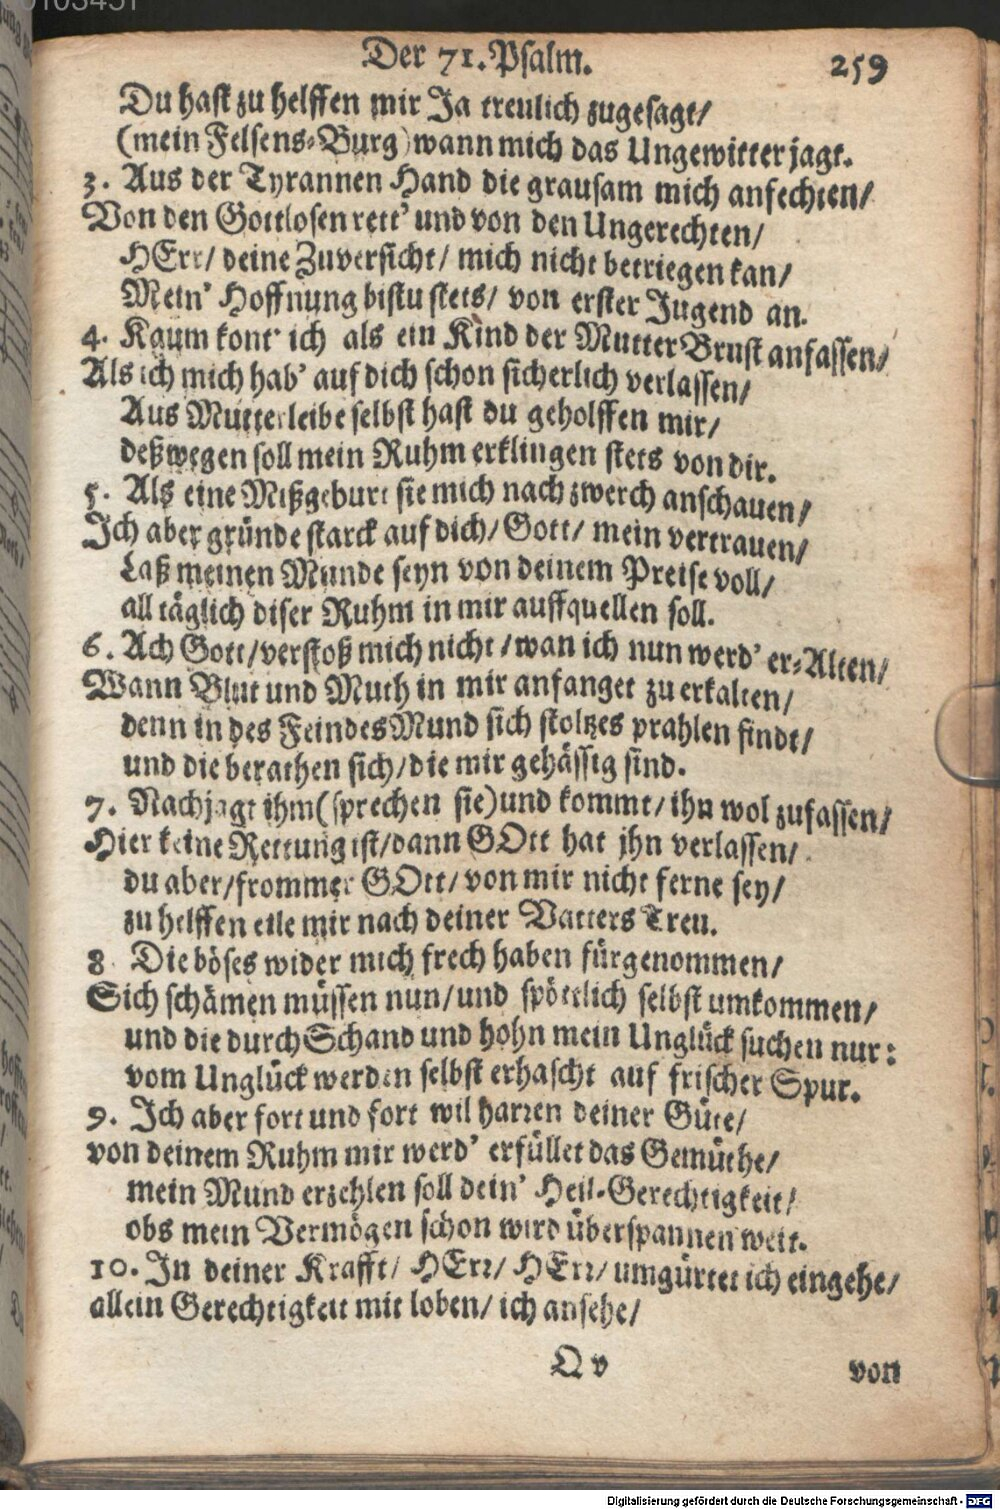 0103451
Der 71. Psalm. 259
Du hast zu helffen mir Ja treulich zugesagt/
(mein Felsens-Burg) wann mich das Ungewitter jagt.
3. Aus der Tyrannen Hand die grausam mich anfechten/
Von den Gottlosen rett' und von den Ungerechten/
HErr/ deine Zuversicht/ mich nicht betriegen kan/
Mein' Hoffnung bistu stets/ von erster Jugend an.
4. Kaum kont' ich als ein Kind der Mutter Brust anfassen/
Als ich mich hab' auf dich schon sicherlich verlassen/
Aus Mutterleibe selbst hast du geholffen mir/
deßwegen soll mein Ruhm erklingen stets von dir.
5. Als eine Mißgeburt sie mich nach zwerch anschauen/
Ich aber gründe starck auf dich/ Gott/ mein vertrauen/
Laß meinen Munde seyn von deinem Preise voll/
all täglich diser Ruhm in mir auffquellen soll.
6. Ach Gott/ verstoß mich nicht/ wan ich nun werd' er-Alten/
Wann Blut und Muth in mir anfanget zu erkalten/
denn in des Feindes Mund sich stoltzes prahlen findt/
und die berathen sich/ die mir gehässig sind.
7. Nachjagt ihm (sprechen sie) und kommt/ ihn wol zufassen/
Hier keine Rettung ist/ dann GOtt hat jhn verlassen/
du aber/ frommer GOtt/ von mir nicht ferne sey/
zu helffen eile mir nach deiner Vatters Treu.
8 Die böses wider mich frech haben fürgenommen/
Sich schämen müssen nun/ und spöttlich selbst umkommen/
und die durch Schand und hohn mein Unglück suchen nur:
vom Unglück werden selbst erhascht auf frischer Spur.
9. Ich aber fort und fort wil harren deiner Güte/
von deinem Ruhm mir werd' erfüllet das Gemüthe/
mein Mund erzehlen soll dein' Heil-Gerechtigkeit/
obs mein Vermögen schon wird überspannen weit.
10. In deiner Krafft/ HErr/ HErr/ umgürtet ich eingehe/
allein Gerechtigkeit mit loben/ ich ansehe/
Q v von
Digitalisierung gefördert durch die Deutsche Forschungsgemeinschaft - DFG